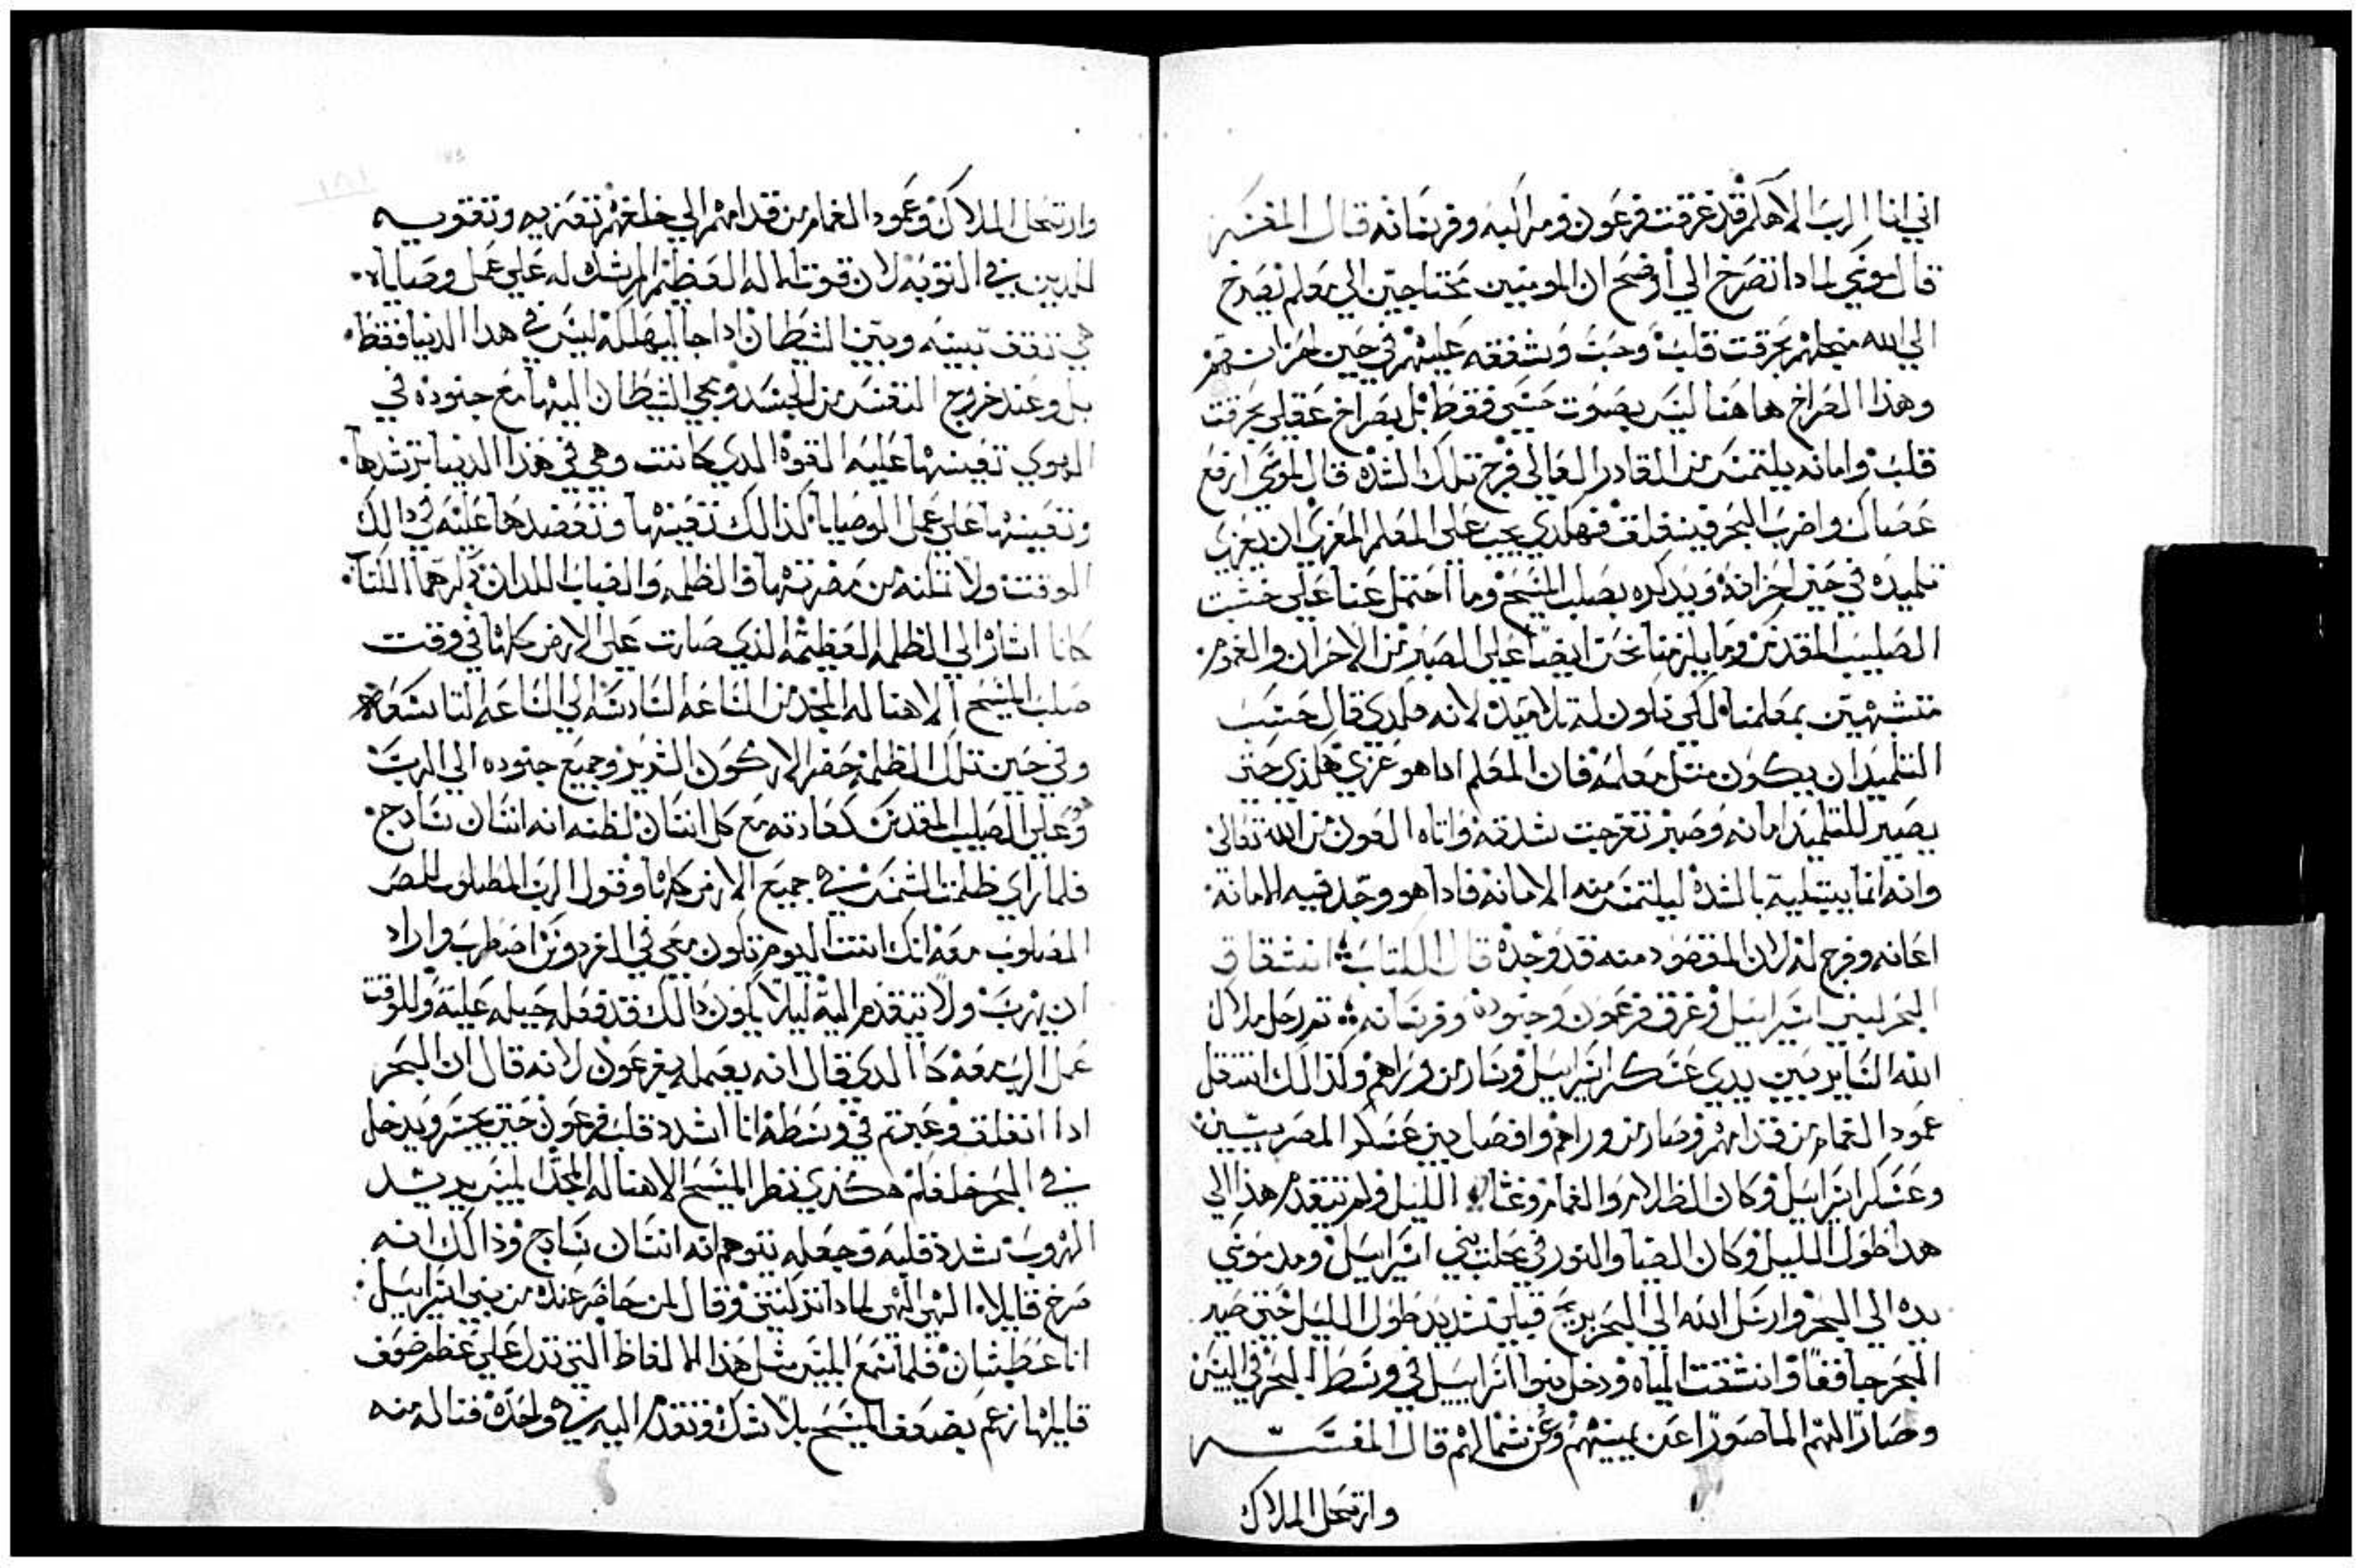 اني انا الرب الاهكم قد غرقت فرعون ومراكبه وفرسانه قال المفسر
قال موسي لمادا تصرخ الي أوضح ان المومنين محتاجين الي معلم يصرخ
الي الله منجلهم بحرقت قلب وحب وشفقه عليهم في حين احزانهم
وهذا الصراخ هاهنا ليس بصوت حسي فقط بل بصراخ عقلي بحرقت
قلب وامانه يلتمس من القادر العالي فرج تلك الشده قال لموسي ارفع
عصاك واضرب البحر فينفلق فهكدي يجب علي المعلم المعزي ان يعزي
تلميده في حين احزانه ويدكره بصلب المسيح وما احتمل عنا علي خشبت
الصليب المقدس وما يلزمنا نحن ايضا علي الصبر من الاحزان والغموم
متشبهين بمعلمنا لكي نكون له تلاميد لانه هكدي قال حسب
التلميد ان يكون متل معلمه فان المعلم ادا هو عزي هكذي حتي
يصير للتلميد امانه وصبر تفرجت شدته واتاه العون من الله تعالي
وانه انما يبتليه بالشده ليلتمس منه الامانه فادا هو وجد فيه الامانه
اعانه وفرج له لان المقصود منه قد وجده قال الكتاب انشقاق
البحر لبني اسراييل وغرق فرعون وجنوده وفرسانه تم رحل ملاك
الله الساير بين يدي عسكر اسراييل وسار من وراهم وكذالك انتقل
عمود الغمام من قدامهم وصار من وراهم وافصل بين عسكر المصريين
وعسكر اسراييل وكان الظلام والغمام وغشا الليل ولم يتقدم هذا الي
هدا طول الليل وكان الضيا والنور في محلت بني اسراييل ومد موسي
يده الي البحر وارسل الله الي البحر بريح قبلي شديد طول الليل حتي صير
البحر جافقا وانشقت المياه ودخل بنوا اسراييل في وسط البحر في اليبس
وصار اليهم الما صورا عن يمينهم وعن شمالهم قال المفسر
وارتحل الملاك
وارتحل الملاك وعمود الغمام من قدامهم الي خلفهم تعزيه وتقويه
للدين في التوبه لان قوت الله العظيم المرشده له علي عمل وصاياه
هي تقف بينه وبين الشيطان ادا جا ليهلكه ليس في هدا الدنيا فقط
بل وعند خروج النفس من الجسد ومجي الشيطان اليها مع جنوده في
الهوي تعينها عليه القوه الدي كانت وهي في هذا الدنيا ترشدها
وتعينها علي عمل الوصايا كذالك تعينها وتعضدها عليه في دالك
الوقت ولا تمكنه من مضرتها والظلمه والضباب اللدان دكرهما الكتاب
كانا اشاره الي الظلمه العظيمه الذي صارت علي الارض كلها في وقت
صلب المسيح الاهنا له المجد من الساعه السادسه الي الساعه التاسعه
وفي حين تلك الظلمه حضر الاركون الشرير وجميع جنوده الي الرب
وهو علي الصليب المقدس كعادته مع كل انسان لظنه انه انسان سادج
فلما راي ظلمت الشمس في جميع الارض كلها وقول الرب المصلوب للص
المصلوب معه انك انت اليوم تكون معي في الفردوس اضطرب واراد
ان يهرب ولا يتقدم اليه ليلا يكون دالك قد فعله حيله عليه وللوقت
عمل الرب معه كما الدي قال انه يعمله بفرعون لانه قال ان البحر
ادا انفلق وعبرتم في وسطه انا اشدد قلب فرعون حتي يجسر ويدخل
في البحر خلفكم هكذي نظر المسيح الاهنا له المجد ابليس يريد
الهروب شدد قلبه وجعله يتوهم انه انسان سادج وذالك انه
صرخ قايلا الهي الهي لمادا تركتني وقال لمن حاضر عنده من بني اسراييل
انا عطشان فلما سمع ابليس متل هذا الالفاظ التي تدل علي عظم ضعف
قايلها زعم بضعف المسيح بلا شك وتقدم اليه في واحده فناله منه